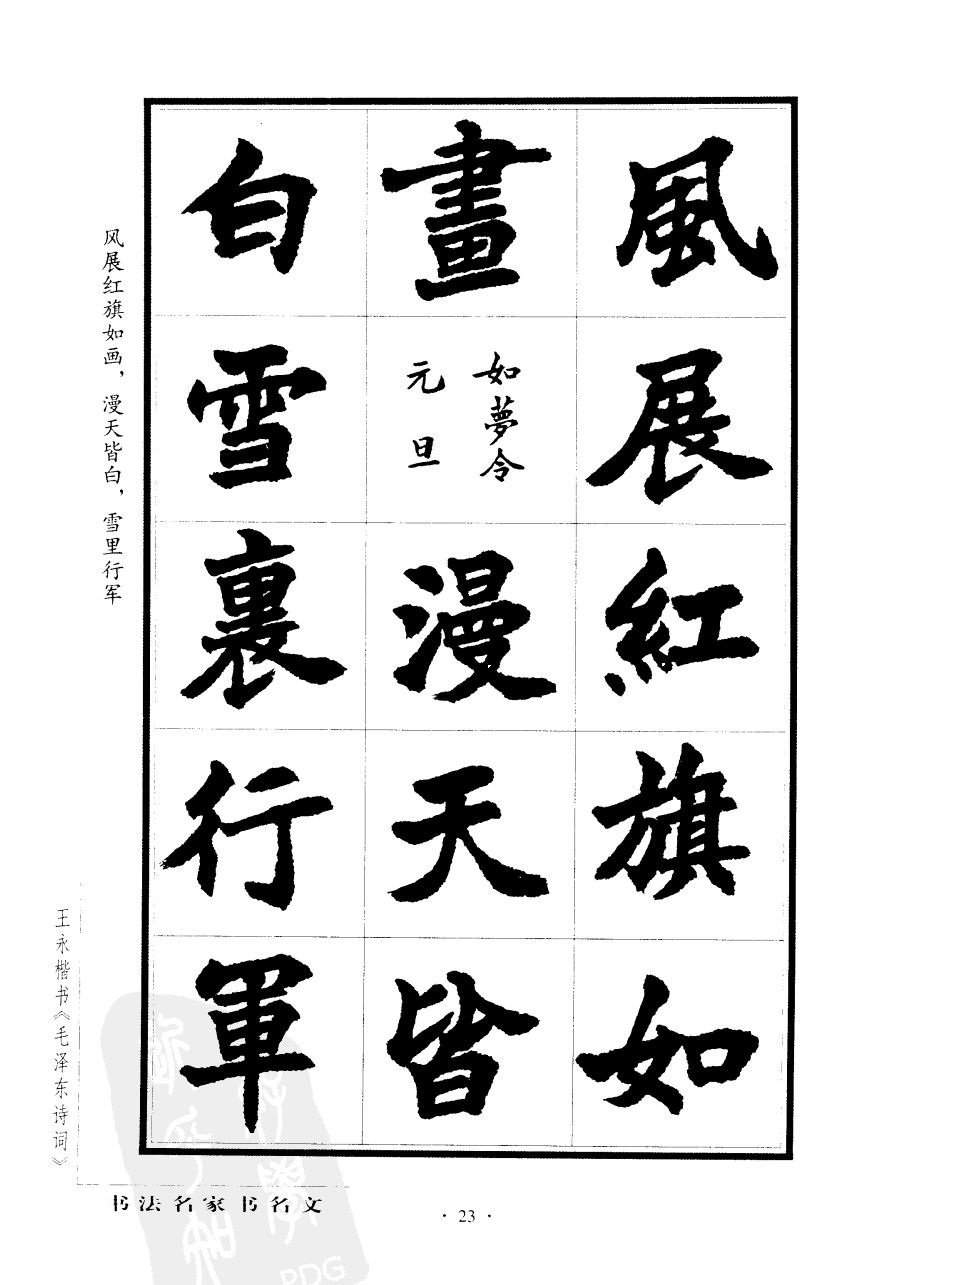 風展紅旗如
畫
如夢令
元旦
漫天皆
白雪裏行軍
风展红旗如画，漫天皆白，雪里行军
王永楷书《毛泽东诗词》
书法名家书名文
· 23 ·
PDG